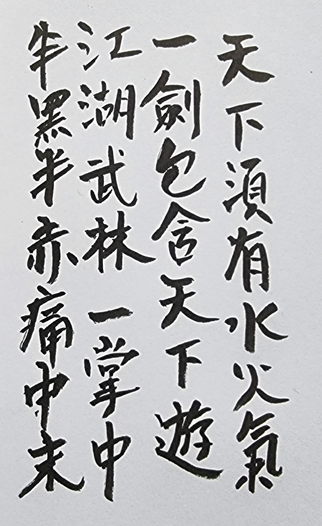 天下須有水火氣
一劍包含天下遊
江湖武林一掌中
半黑半赤痛中末